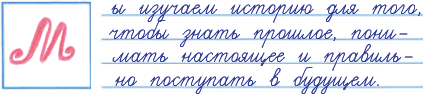 Мы изучаем историю для того,
чтобы знать прошлое, пони-
мать настоящее и правиль-
но поступать в будущем.